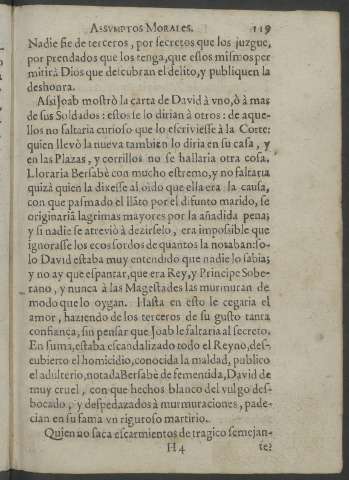 ASSVMPTOS MORALES. 119
Nadie fie de terceros, por secretos que los juzgue,
por prendados que los tenga, que essos mismos per
mitirà Dios que descubran el delito, y publiquen la
deshonra.
Assi Joab mostrò la carta de David à vno, ò à mas
de sus Soldados: estos se lo dirian à otros: de aque-
llos no faltaria curioso que lo escriviesse à la Corte:
quien llevò la nueva tambien lo diria en su casa, y
en las Plazas, y corrillos no se hallaria otra cosa.
Lloraria Bersabè con mucho estremo, y no faltaria
quizà quien la dixesse al oìdo que ella era la causa,
con que pasmado el llãto por el difunto marido, se
originariã lagrimas mayores por la añadida pena;
y si nadie se atreviò à dezirselo, era impossible que
ignorasse los ecos sordos de quantos la notaban: so-
lo David estaba muy entendido que nadie lo sabia;
y no ay que espantar, que era Rey, y Principe Sobe-
rano, y nunca à las Magestades las murmuran de
modo que lo oygan. Hasta en esto le cegaria el
amor, haziendo de los terceros de su gusto tanta
confiança, sin pensar que Joab le faltaria al secreto.
En suma, estaba escandalizado todo el Reyno, des-
cubierto el homicidio, conocida la maldad, publico
el adulterio, notada Bersabè de fementida, David de
muy cruel, con que hechos blanco del vulgo des-
bocado, y despedazados à murmuraciones, pade-
cian en su fama vn riguroso martirio.
Quien no saca escarmientos de tragico semejan-
H4 te?